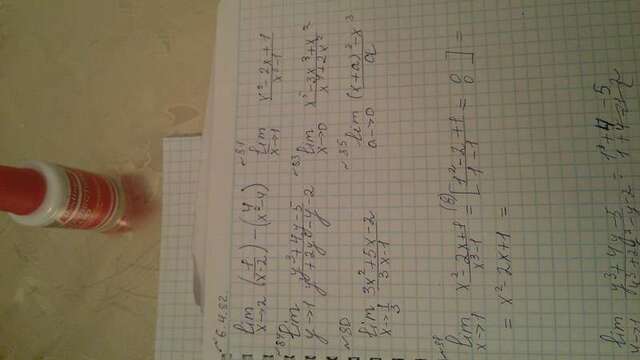 ~ 6.4.82.
lim x→2 (1/(x-2)) - (4/(x²-4))
~81 lim x→1 (x²-2x+1)/(x³-1)
lim y→1 (y³+4y-5)/(y⁴+2y³-y-2)
~83 lim x→0 (x⁵-3x³+x²)/(x⁴+2x²)
~80
lim x→1/3 (3x²+5x-2)/(3x-1)
~85 lim a→0 ((x+a)³-x³)/a
~81
lim x→1 (x²-2x+1)/(x³-1) = [(1²-2+1)/(1-1) = 0/0] =
= x²-2x+1 =
lim y→1 (y³+4y-5)/(y⁴+2y³-y-2) =